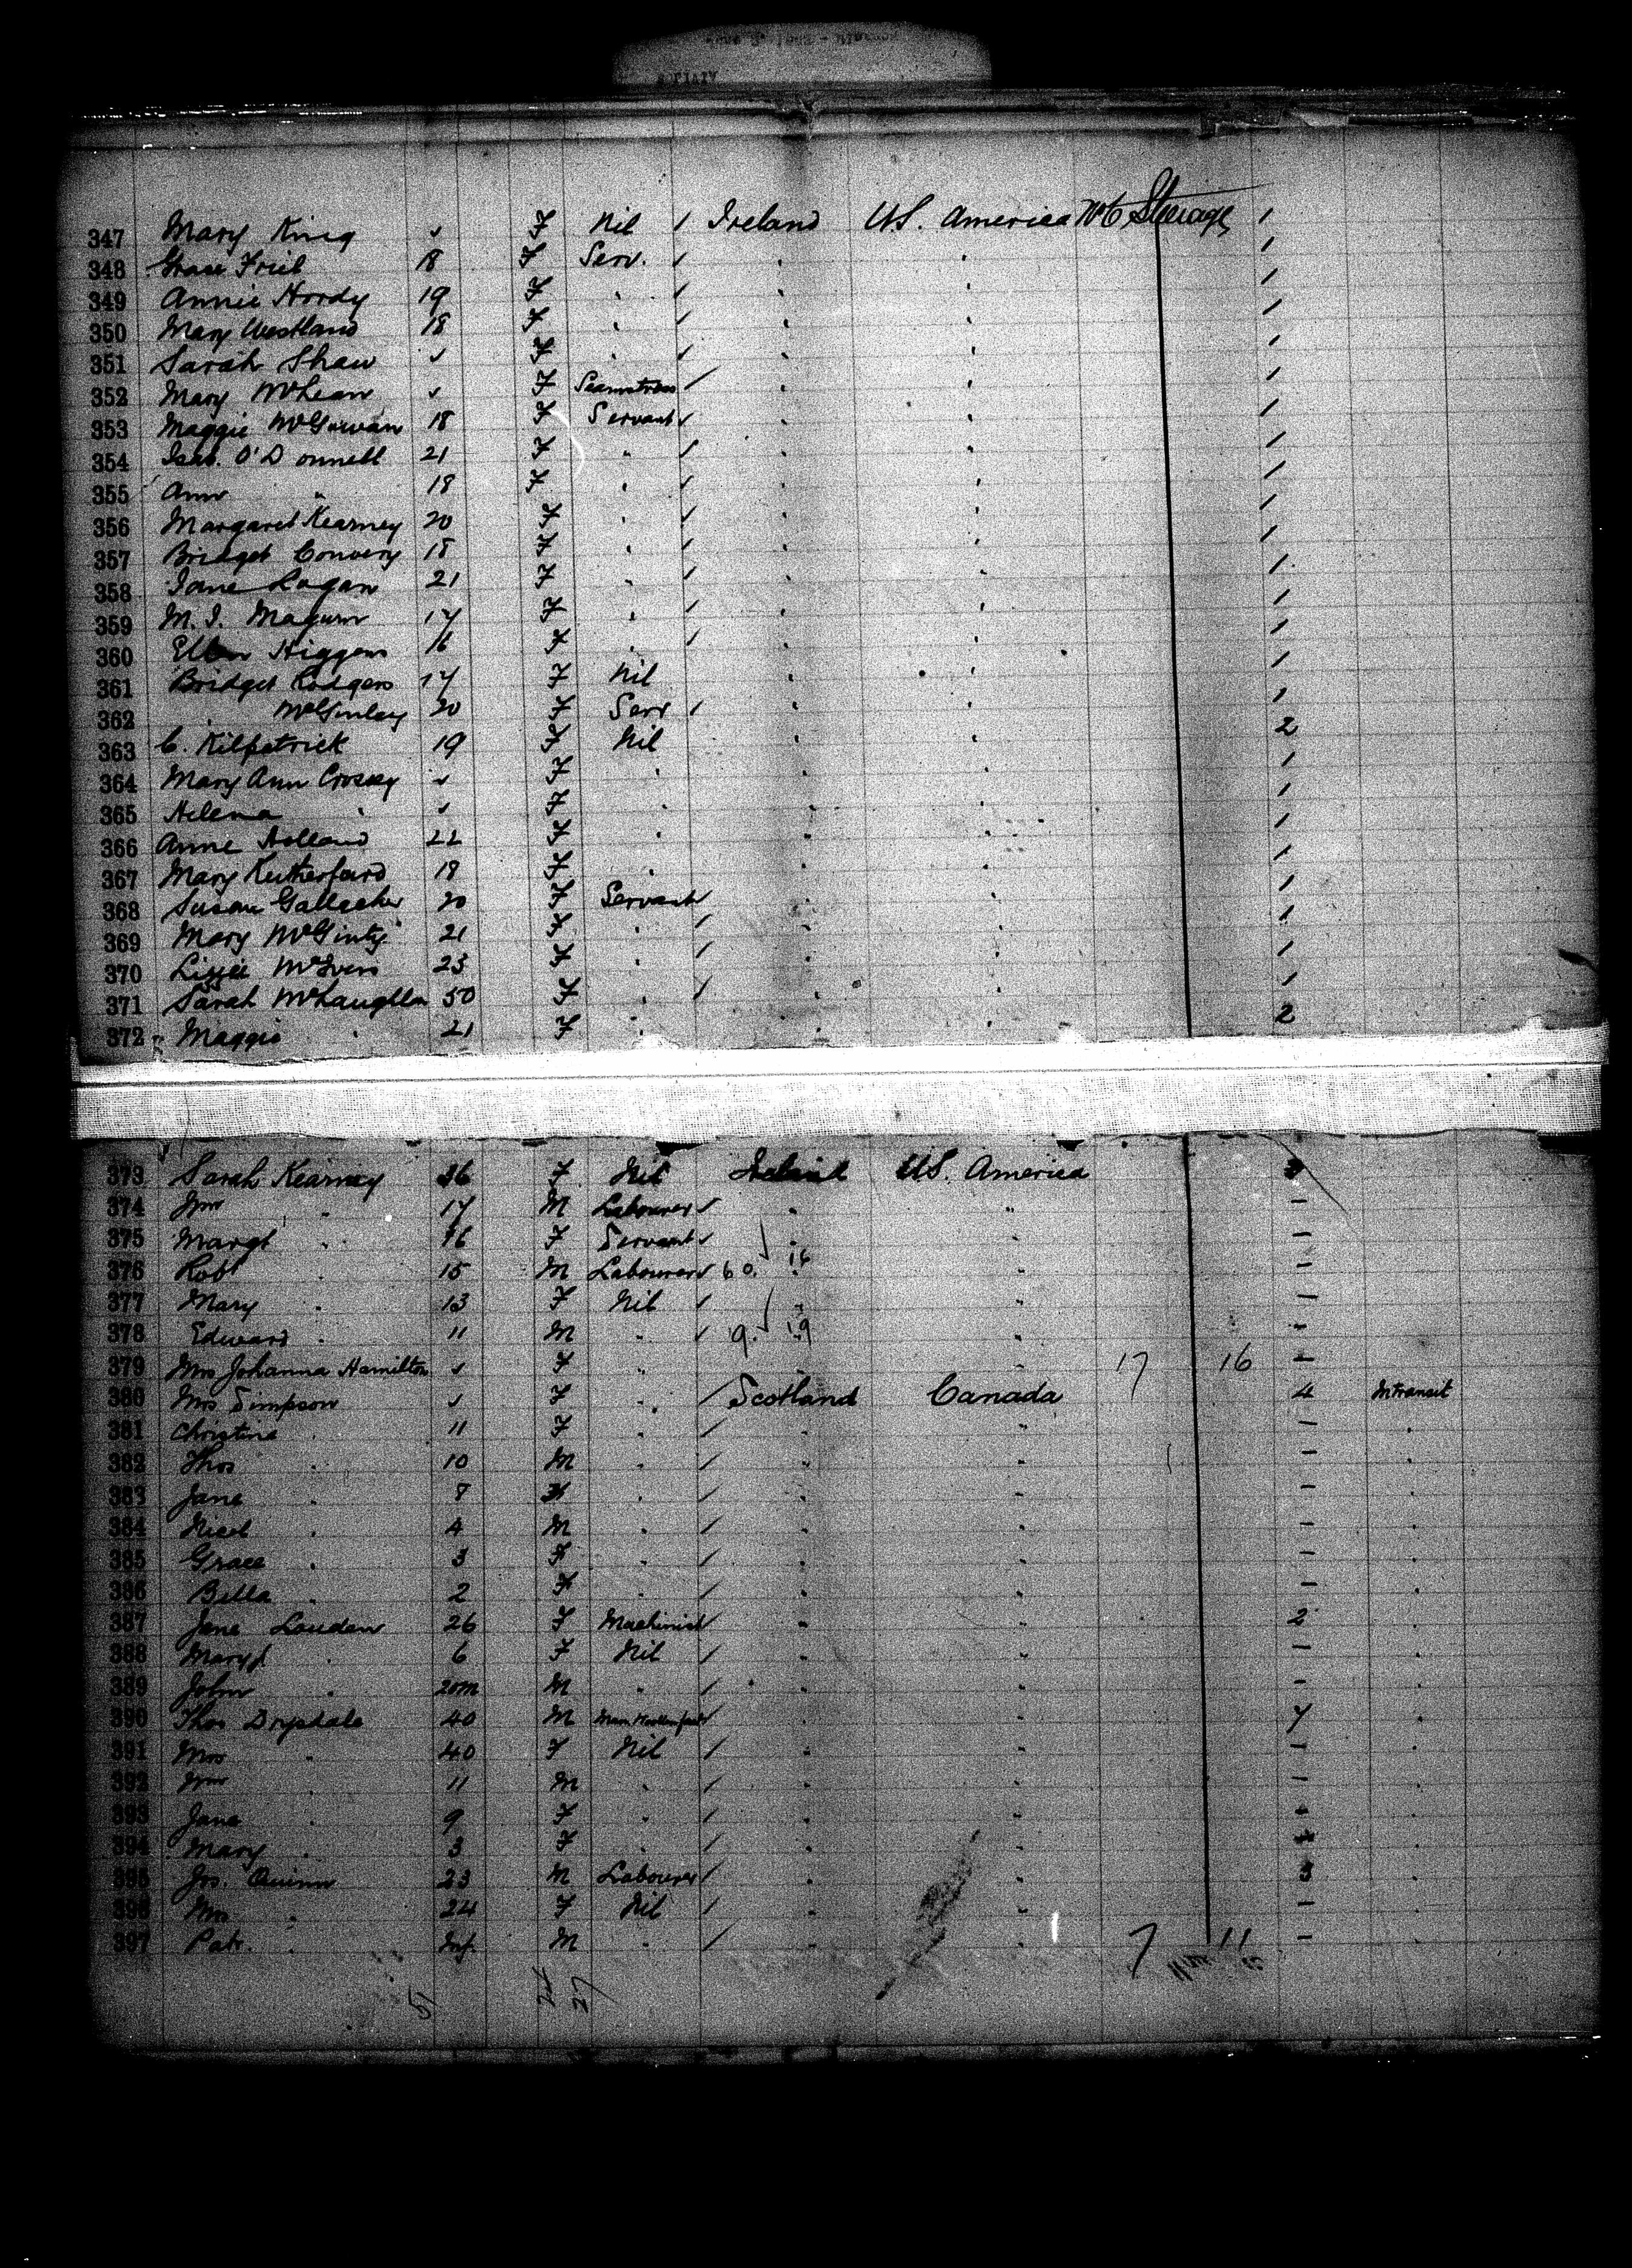 347 Mary King ✓ F Nil / Ireland U.S. America Steerage 1
348 Grace Friel 18 F Serv. / " " 1
349 Annie Hardy 19 F " / " " 1
350 Mary Westland 18 F " / " " 1
351 Sarah Shaw ✓ F " / " " 1
352 Mary McLean ✓ F Seamstress / " " 1
353 Maggie McGirvan 18 F Servant / " " 1
354 Isab. O'Donnell 21 F " / " " 1
355 Ann " 18 F " / " " 1
356 Margaret Kearney 20 F " / " " 1
357 Bridget Convery 18 F " / " " 1
358 Jane Logan 21 F " / " " 1
359 M. J. Magurn 17 F " / " " 1
360 Ellen Higgens 16 F " / " " 1
361 Bridget Rodgers 17 F Nil " " 1
362 " McGinley 20 F Serv / " " 1
363 C. Kilpatrick 19 F Nil " " 2
364 Mary Ann Crosby ✓ F " " " 1
365 Helena " ✓ F " " " 1
366 Anne Holland 22 F " " " 1
367 Mary Rutherford 18 F " " " 1
368 Susan Gallagher 20 F Servant / " " 1
369 Mary McGinty 21 F " / " " 1
370 Lizzie McIvers 23 F " / " " 1
371 Sarah McLaughlin 50 F " / " " 1
372 Maggie " 21 F " " " 2
373 Sarah Kearney 36 F Nil Ireland U.S. America
374 Wm " 17 M Labourer / " " -
375 Margt " 16 F Servant / " " -
376 Robt " 15 M Labourer / " " -
377 Mary " 13 F Nil / " " -
378 Edward " 11 M " / " " -
379 Mrs Johanna Hamilton ✓ F " " 17 16 -
380 Mrs Simpson ✓ F " / Scotland Canada 4 Intransit
381 Christina " 11 F " / " " - "
382 Thos " 10 M " / " " - "
383 Jane " 8 F " / " " - "
384 Nicol " 4 M " / " " - "
385 Grace " 3 F " / " " - "
386 Bella " 2 F " / " " - "
387 Jane Louden 26 F Machinist / " " 2 "
388 Mary " 6 F Nil / " " - "
389 John " 20m M " / " " - "
390 Thos Drysdale 40 M / " " 7 "
391 Mrs " 40 F Nil / " " - "
392 Wm " 11 M " / " " - "
393 Jane " 9 F " / " " - "
394 Mary " 3 F " / " " - "
395 Jos. Quinn 23 M Labourer / " " 3 "
396 Mrs " 24 F Nil / " " - "
397 Patr. " Inf. M " / " " 7 11 - "
51 24 27